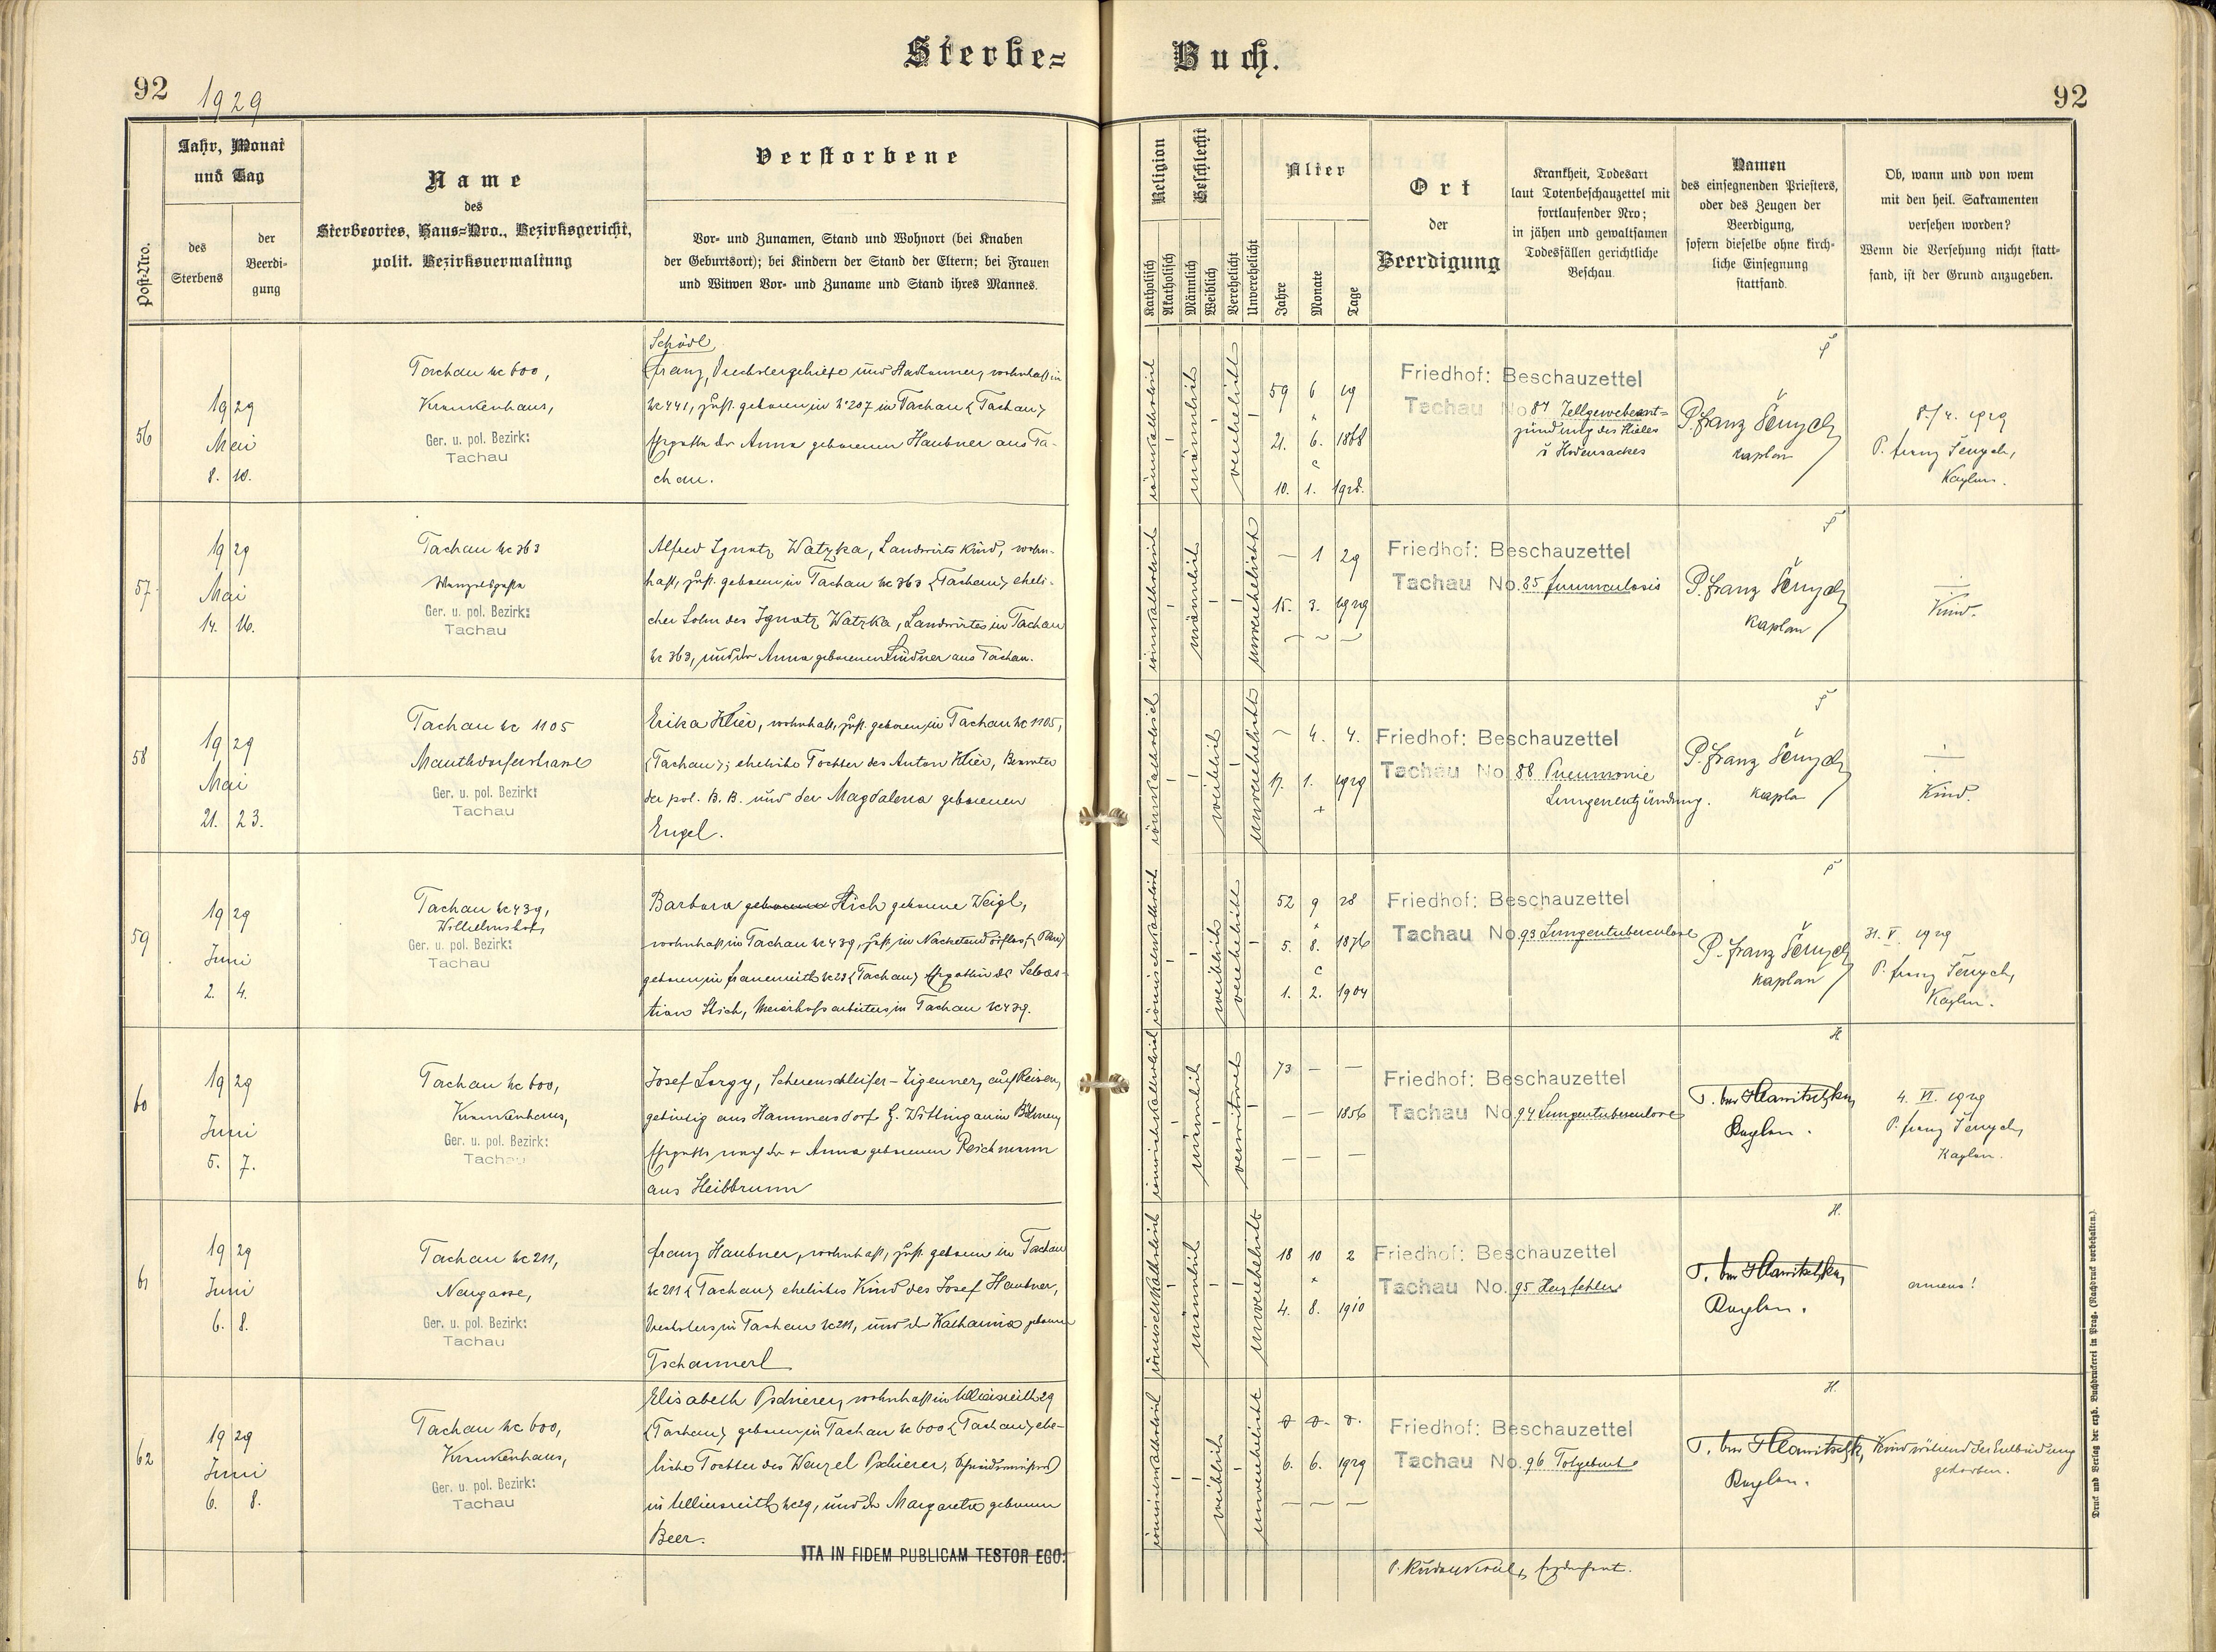 Sterbe= Buch.
92
1929
92
Post-Nro.
Jahr, Monat
und Tag
des
Sterbens
der
Beerdi-
gung
Name
des
Sterbeortes, Haus=Nro., Bezirksgericht,
polit. Bezirksverwaltung
Verstorbene
Vor- und Zunamen, Stand und Wohnort (bei Knaben
der Geburtsort); bei Kindern der Stand der Eltern; bei Frauen
und Witwen Vor- und Zuname und Stand ihres Mannes.
Religion
Katholisch
Akatholisch
Geschlecht
Männlich
Weiblich
Verehelicht
Unverehelicht
Alter
Jahre
Monate
Tage
Ort
der
Beerdigung
Krankheit, Todesart
laut Totenbeschauzettel mit
fortlaufender Nro;
in jähen und gewaltsamen
Todesfällen gerichtliche
Beschau.
Namen
des einsegnenden Priesters,
oder des Zeugen der
Beerdigung,
sofern dieselbe ohne kirch-
liche Einsegnung
stattfand.
Ob, wann und von wem
mit den heil. Sakramenten
versehen worden?
Wenn die Versehung nicht statt-
fand, ist der Grund anzugeben.
56
1929
Mai
8. 10.
Tachau Nc 600,
Krankenhaus,
Ger. u. pol. Bezirk:
Tachau
Schödl
Franz, wohnhaft in
Nc 441, zust. geboren in N° 207 in Tachau (Tachau)
der Anna geborenen Haubner aus Ta-
chau.
römischkatholisch
männlich
verehelicht
59 6 19
*
21. 6. 1868
10. 1. 1928.
Friedhof: Beschauzettel
Tachau No 84 Zellgewebeent=
zündung des
u Hodensackes
P. Franz Šenych
Kaplan
8./4. 1929
P. Franz Šenych,
Kaplan.
57
1929
Mai
14. 16.
Tachau Nc 363
Ger. u. pol. Bezirk:
Tachau
Alfred Ignatz Watzka, Landwirts Kind, wohn-
haft, zust. geboren in Tachau Nc 363 (Tachau) eheli-
cher Sohn des Ignatz Watzka, Landwirtes in Tachau
Nc 363, und der Anna geborenen Lindner aus Tachau.
römischkatholisch
männlich
unverehelicht
— 1 29
15. 3. 1929
— — —
Friedhof: Beschauzettel
Tachau No. 85 furunculosis
P. Franz Šenych
Kaplan
Kind.
58
1929
Mai
21. 23.
Tachau Nc 1105
Mauthdorferstrasse
Ger. u. pol. Bezirk:
Tachau
Erika Klier, wohnhaft, zust. geboren in Tachau Nc 1105,
(Tachau); eheliche Tochter des Anton Klier, Beamter
der pol. B. B. und der Magdalena geborenen
Engel.
römischkatholisch
weiblich
unverehelicht
— 4. 4.
17. 1. 1929
+
Friedhof: Beschauzettel
Tachau No. 88 Pneumonie
Lungenentzündung.
P. Franz Šenych
Kapla
Kind.
59
1929
Juni
2. 4.
Tachau Nc 439,
Wilhelmshof,
Ger. u. pol. Bezirk:
Tachau
Barbara geborene Stich geborene Weigl,
wohnhaft in Tachau Nc 439, zust. in
geboren in Frauenreith Nc 23 (Tachau) Ehegattin des Sebas-
tian Stich, Meierhofsarbeiters in Tachau Nc 439.
römischkatholisch
weiblich
verehelicht
52 9 28
*
5. 8. 1876
1. 2. 1904
Friedhof: Beschauzettel
Tachau No. 93 Lungentuberculose
P. Franz Šenych
Kaplan
31. V. 1929
P. Franz Šenych,
Kaplan.
60
1929
Juni
5. 7.
Tachau Nc 600,
Krankenhaus,
Ger. u. pol. Bezirk:
Tachau
Josef Lorgy, Scherenschleifer-Zigeuner, auf Reisen,
gebürtig aus Hammersdorf in Böhmen,
nach der + Anna geborenen Reichmann
aus Heilbrunn
römischkatholisch
männlich
verwitwet
73 — —
— — 1856
— — —
Friedhof: Beschauzettel
Tachau No. 94 Lungentuberculose
Kaplan.
4. VI. 1929
P. Franz Šenych,
Kaplan.
61
1929
Juni
6. 8.
Tachau Nc 211,
Neugasse,
Ger. u. pol. Bezirk:
Tachau
Franz Haubner, wohnhaft, zust. geboren in Tachau
Nc 211 (Tachau) eheliches Kind des Josef Haubner,
Drechslers in Tachau Nc 211, und der Katharina geborenen
Tschannerl
römischkatholisch
männlich
unverehelicht
18 10 2
*
4. 8. 1910
Friedhof: Beschauzettel
Tachau No. 95 Herzfehler
Kaplan.
amens!
62
1929
Juni
6. 8.
Tachau Nc 600,
Krankenhaus,
Ger. u. pol. Bezirk:
Tachau
Elisabeth Pschierer, wohnhaft in Ulliersreith 29
(Tachau) geboren in Tachau Nc 600 (Tachau) ehe-
liche Tochter des Wenzel Pschierer,
in Ulliersreith Nc 29, und der Margareta geborenen
Beer.
römischkatholisch
weiblich
unverehelicht
0 0. 0.
6. 6. 1929
— — —
Friedhof: Beschauzettel
Tachau No. 96 Totgeburt
Kaplan.
Kind während der Entbindung
gestorben.
ITA IN FIDEM PUBLICAM TESTOR EGO:
Druck und Verlag der erzb. Buchdruckerei in Prag. (Nachdruck vorbehalten.)